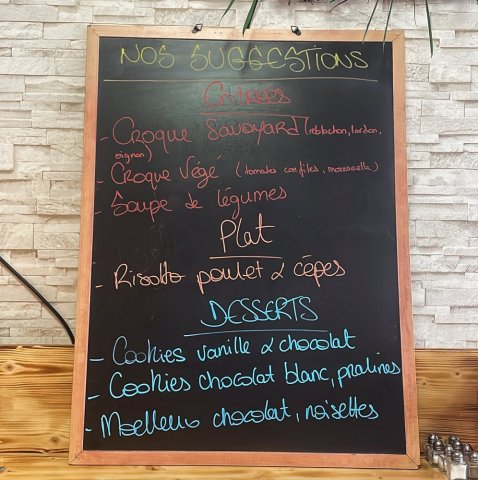 NOS SUGGESTIONS
Entrées
- Croque Savoyard (reblochon, lardon,
oignon)
- Croque Végé (tomates confites, mozzarella)
- Soupe de légumes
Plat
- Risotto poulet & cèpes
DESSERTS
- Cookies vanille & chocolat
- Cookies chocolat blanc, pralines
- Moelleux chocolat, noisettes